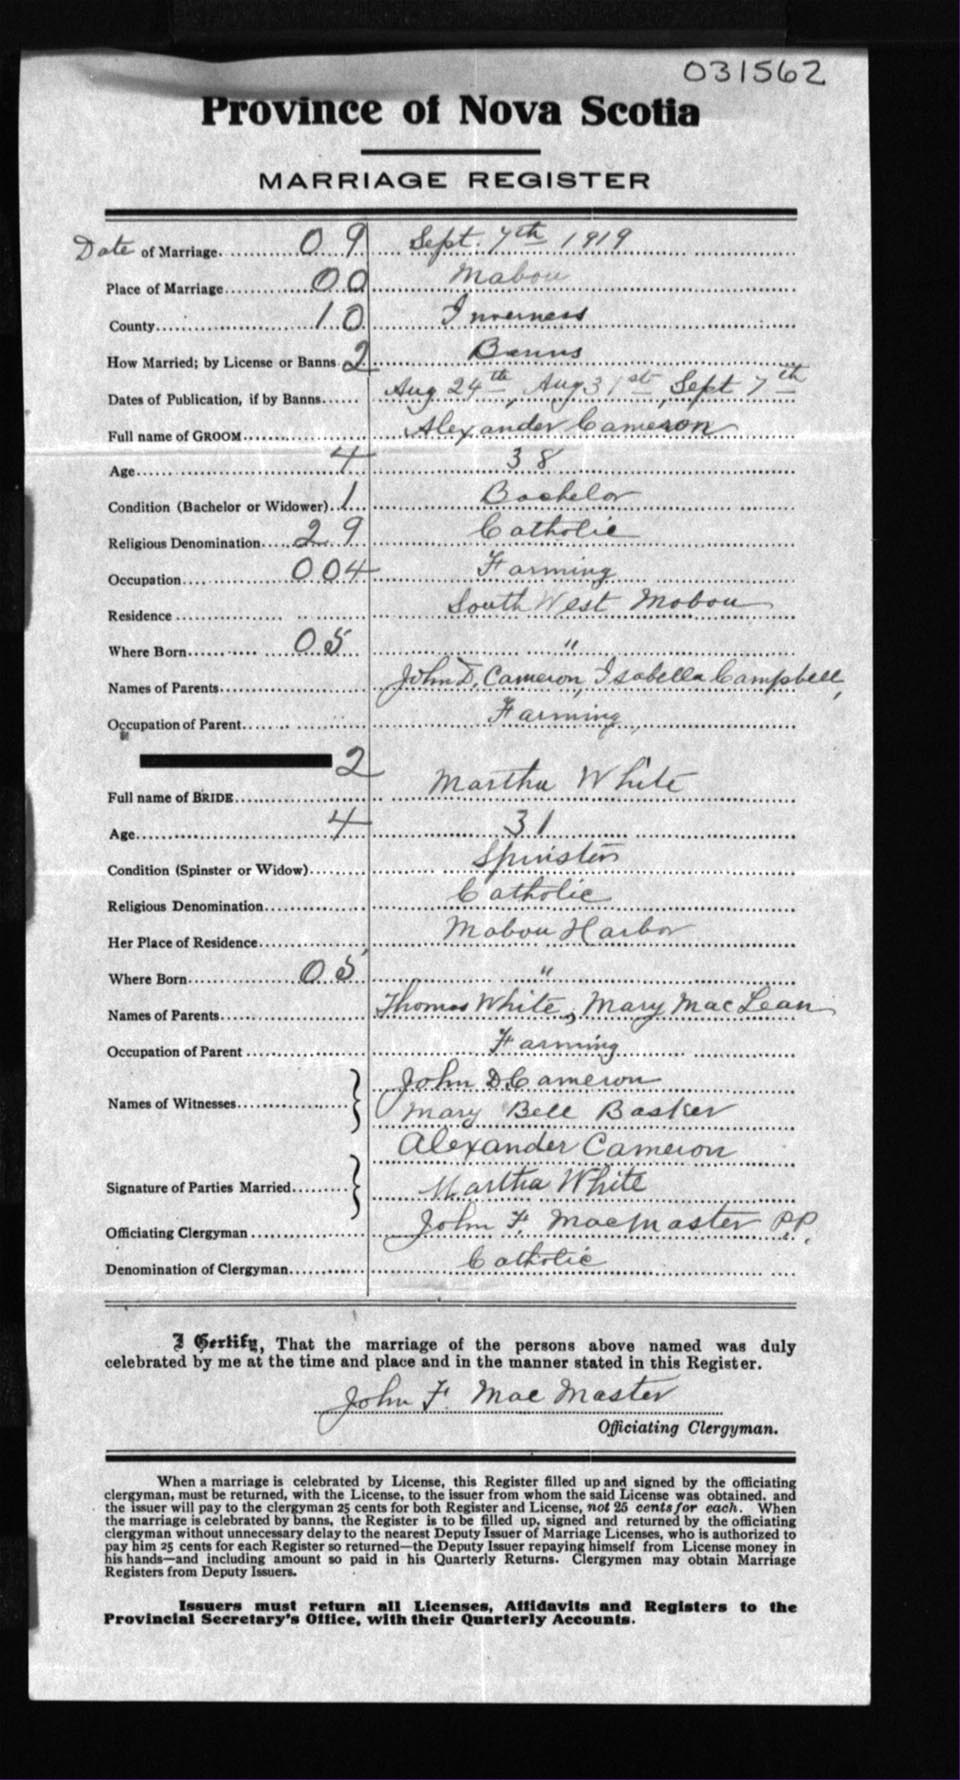 031562
Province of Nova Scotia
MARRIAGE REGISTER
Date of Marriage 09 Sept. 7th 1919
Place of Marriage 00 Mabou
County 10 Inverness
How Married; by License or Banns 2 Banns
Dates of Publication, if by Banns Aug 24th, Aug. 31st, Sept 7th
Full name of GROOM Alexander Cameron
Age 4 38
Condition (Bachelor or Widower) 1 Bachelor
Religious Denomination 29 Catholic
Occupation 004 Farming
Residence South West Mabou
Where Born 05 "
Names of Parents John D. Cameron, Isabella Campbell,
Occupation of Parent Farming
2
Full name of BRIDE Martha White
Age 4 31
Condition (Spinster or Widow) Spinster
Religious Denomination Catholic
Her Place of Residence Mabou Harbor
Where Born 05 "
Names of Parents Thomas White, Mary MacLean
Occupation of Parent Farming
John D Cameron
Names of Witnesses Mary Bell Basker
Alexander Cameron
Signature of Parties Married Martha White
Officiating Clergyman John F. MacMaster P.P.
Denomination of Clergyman Catholic
I Certify, That the marriage of the persons above named was duly
celebrated by me at the time and place and in the manner stated in this Register.
John F. MacMaster
Officiating Clergyman.
When a marriage is celebrated by License, this Register filled up and signed by the officiating
clergyman, must be returned, with the License, to the issuer from whom the said License was obtained. and
the issuer will pay to the clergyman 25 cents for both Register and License, not 25 cents for each. When
the marriage is celebrated by banns, the Register is to be filled up, signed and returned by the officiating
clergyman without unnecessary delay to the nearest Deputy Issuer of Marriage Licenses, who is authorized to
pay him 25 cents for each Register so returned—the Deputy Issuer repaying himself from License money in
his hands—and including amount so paid in his Quarterly Returns. Clergymen may obtain Marriage
Registers from Deputy Issuers.
Issuers must return all Licenses, Affidavits and Registers to the
Provincial Secretary's Office, with their Quarterly Accounts.